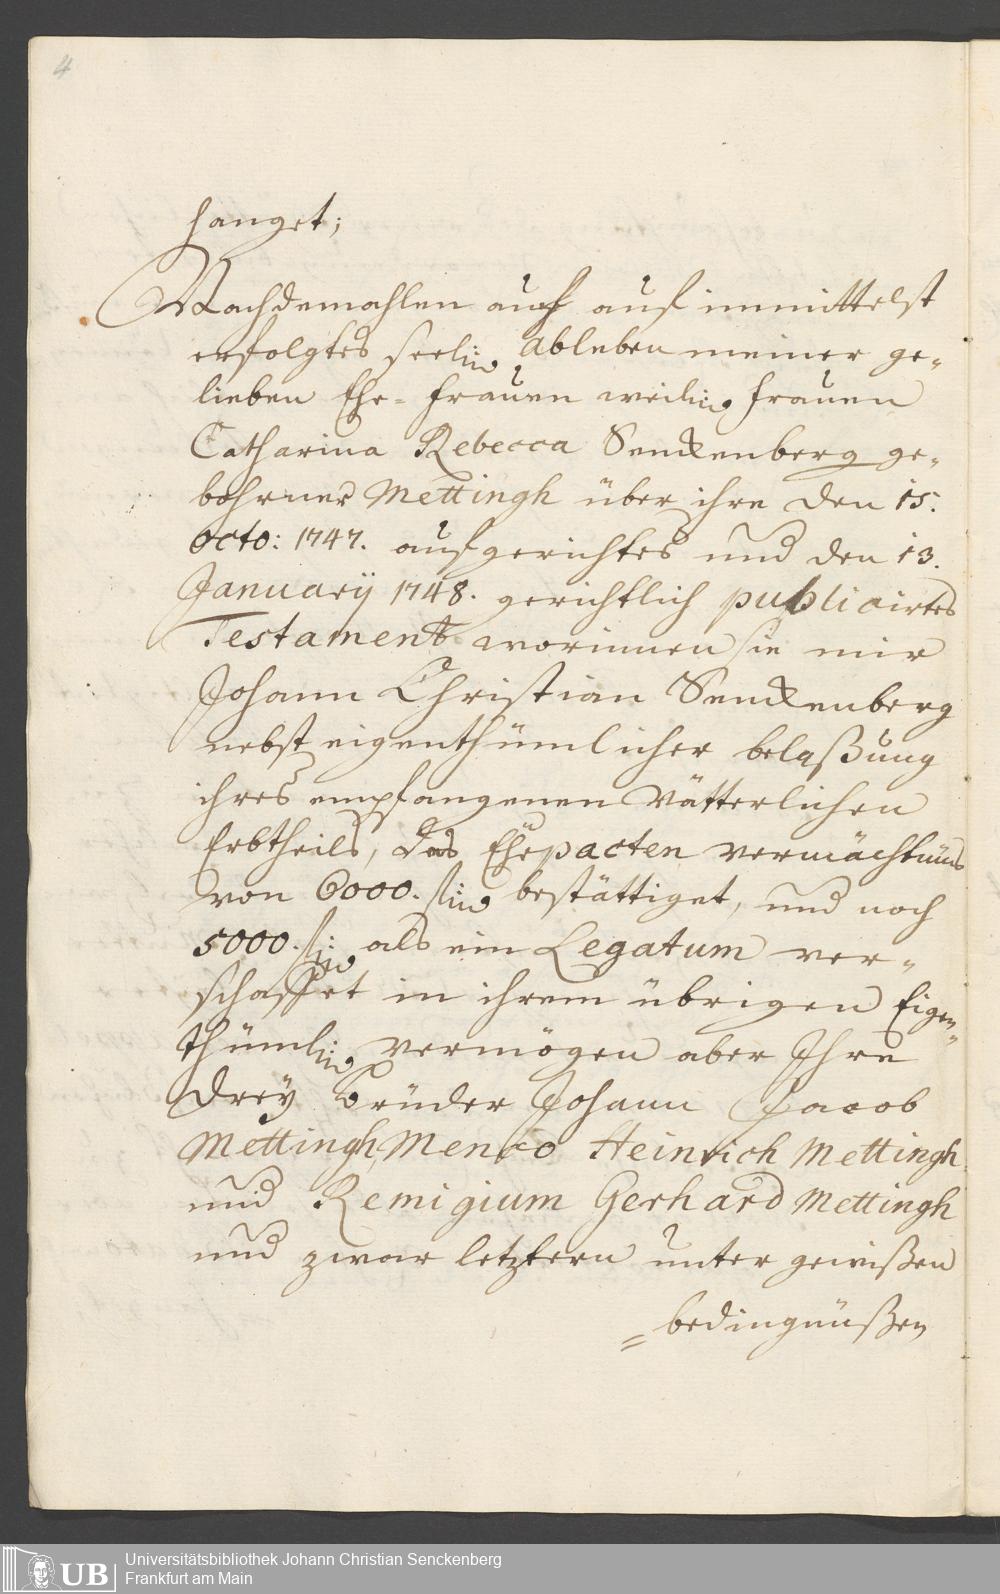 4
hanget;
Nachdemahlen auch auf inmittelst
erfolgtes seel: Ableben meiner ge-
lieben Ehe-Frauen weil: Frauen
Catharina Rebecca Senckenberg ge-
bohrner Mettingh über ihre den 15.
Octo: 1747. aufgerichtes und den 13.
Januarij 1748. gerichtlich publicirtes
Testament worinnen sie mir
Johann Christian Senckenberg
nebst eigenthümlicher belaßung
ihres empfangenen Vätterlichen
Erbtheils, das Ehepacten vermächtnüs
von 6000. fl: bestättiget, und noch
5000. fl: als ein Legatum ver-
schaffet in ihrem übrigen Eigen-
thüml: vermögen aber Ihre
drey Brüder Johann Jacob
Mettingh, Menco Heinrich Mettingh
und Remigium Gerhard Mettingh
und zwar letztern unter gewißen
=bedingnüßen
UB Universitätsbibliothek Johann Christian Senckenberg
Frankfurt am Main